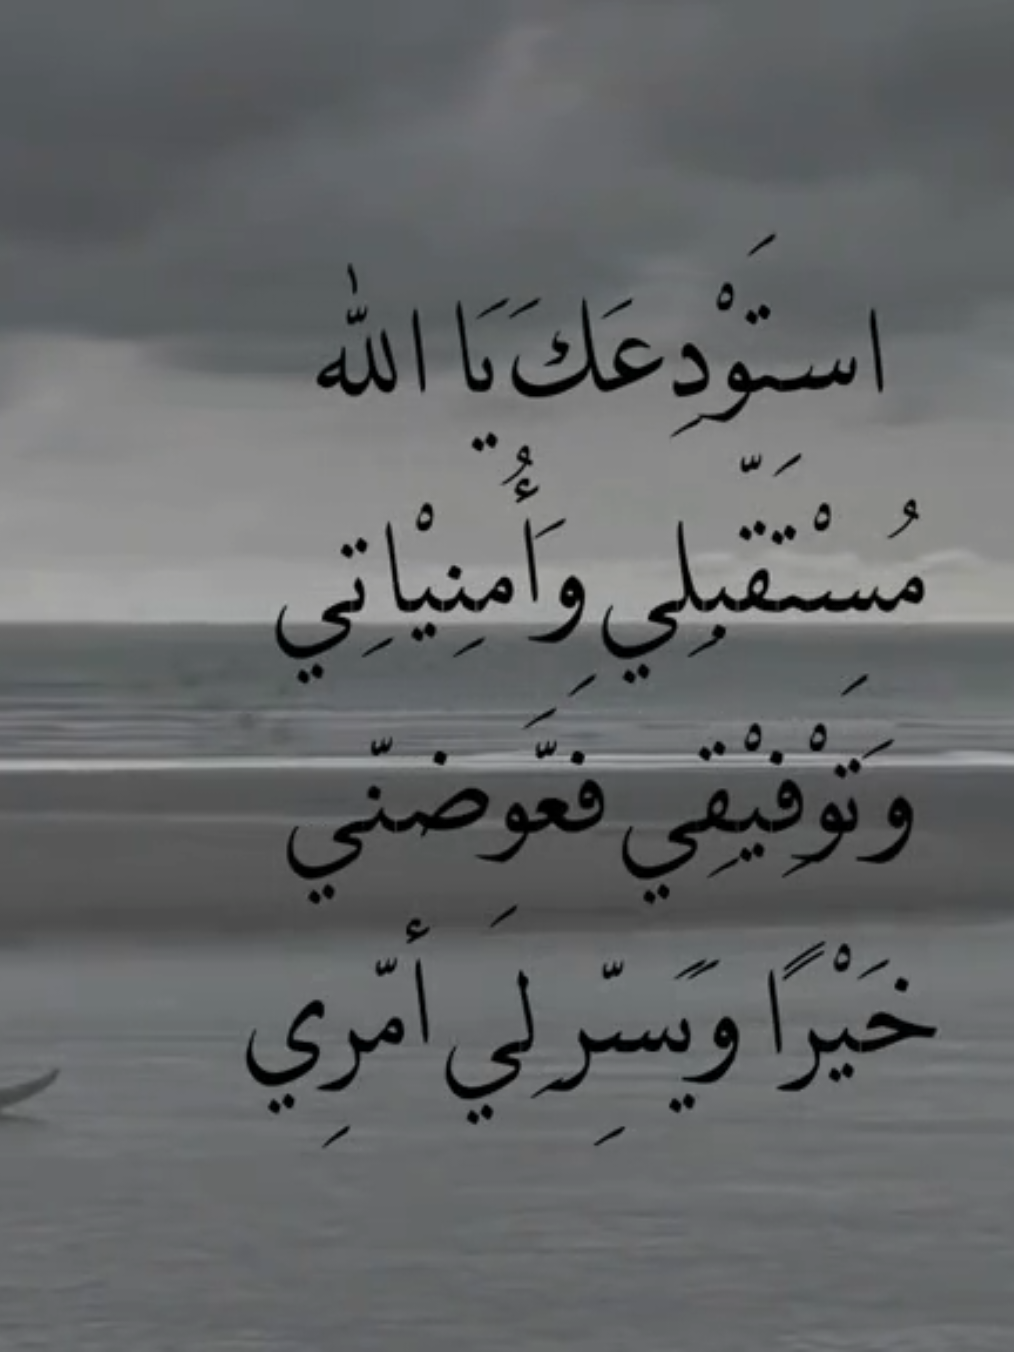 استَوْدِعَكَ يَا اللّٰه
مُسْتَقّبِلي وَأُمنِيْاتِي
وَتَوْفِيْقِي فَعَّوضنّي
خَيْرًا وَيَسِّر لِيَ أمّرِي